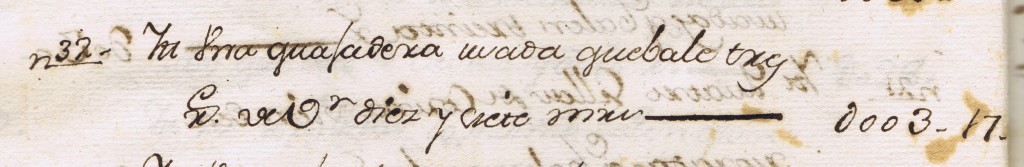 n32.- Yt Una quajadera usada que bale trs
Rs. de Vn diez y siete mrs — 0003-17.